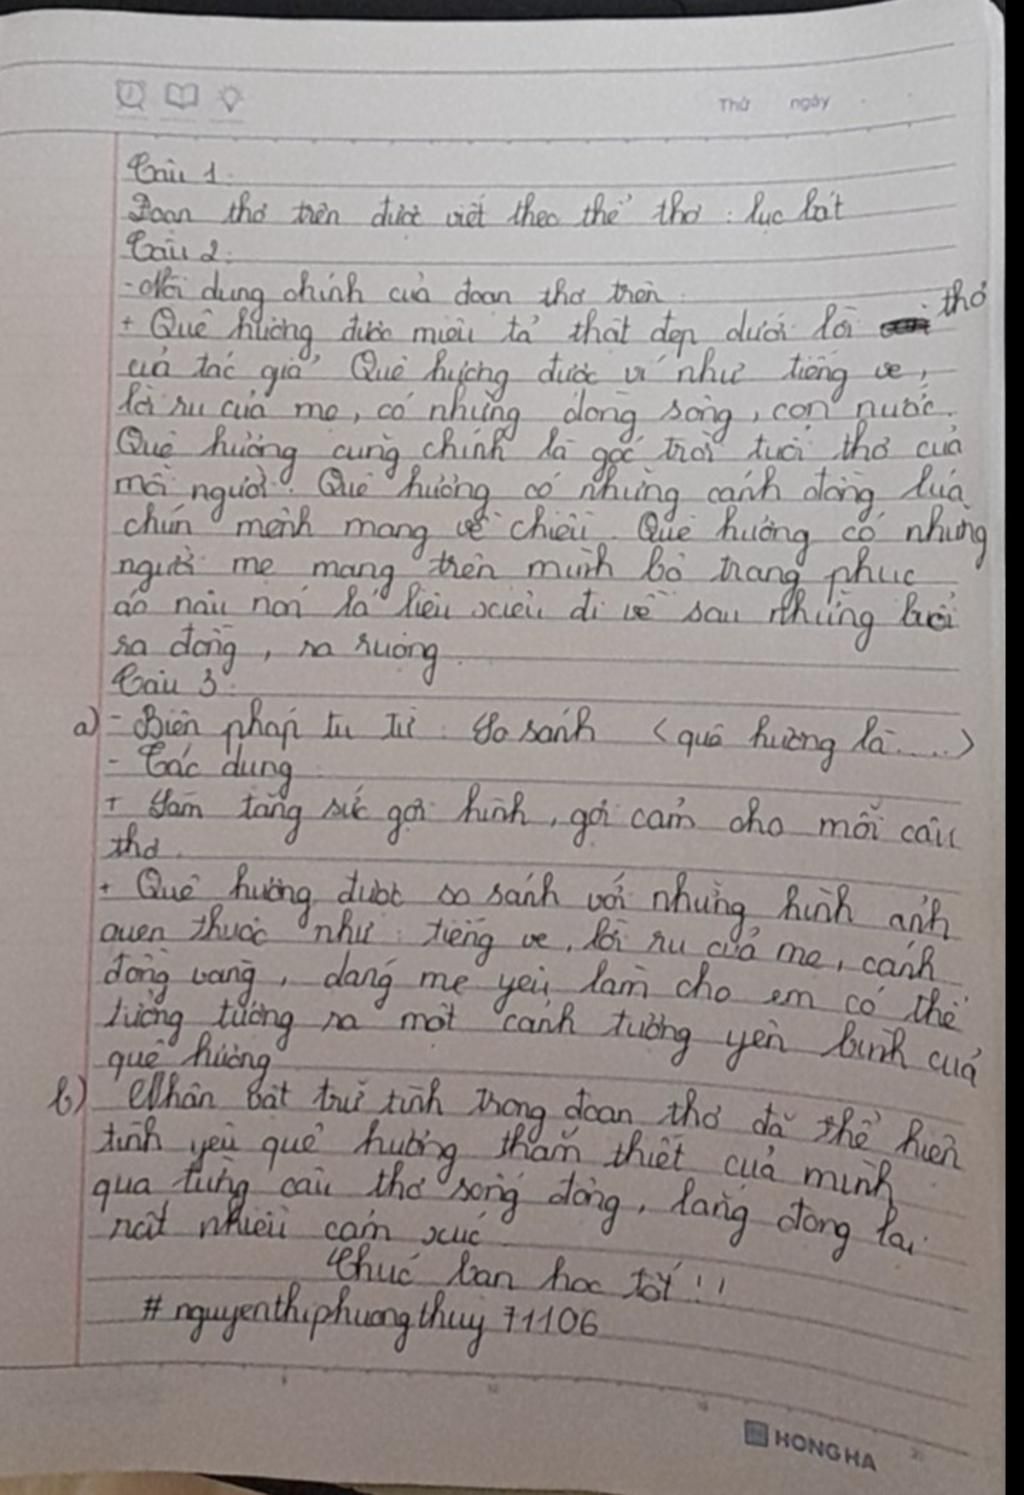 Thứ ngày
Câu 1:
Đoạn thơ trên được viết theo thể thơ: lục bát
Câu 2:
- Nội dung chính của đoạn thơ trên:
+ Quê hương được miêu tả thật đẹp dưới lời thơ
của tác giả. Quê hương được ví như tiếng ve,
lời ru của mẹ, có những dòng sông, con nước.
Quê hương cũng chính là góc trời tuổi thơ của
mỗi người. Quê hương có những cánh đồng lúa
chín mênh mang về chiều. Quê hương có những
người mẹ mang trên mình bộ trang phục
áo nâu nón lá liêu xiêu đi về sau những buổi
ra đồng, ra ruộng.
Câu 3:
a) - Biện pháp tu từ: So sánh (quê hương là.....)
- Tác dụng:
+ Làm tăng sức gợi hình, gợi cảm cho mỗi câu
thơ.
+ Quê hương được so sánh với những hình ảnh
quen thuộc như: tiếng ve, lời ru của mẹ, cánh
đồng vàng, dáng mẹ yêu làm cho em có thể
tưởng tượng ra một cảnh tượng yên bình của
quê hương
b) Nhân vật trữ tình trong đoạn thơ đã thể hiện
tình yêu quê hương thắm thiết của mình
qua từng câu thơ sống động, lắng đọng lại
rất nhiều cảm xúc
Chúc bạn học tốt!!
# nguyenthiphuongthuy 71106
HONG HA